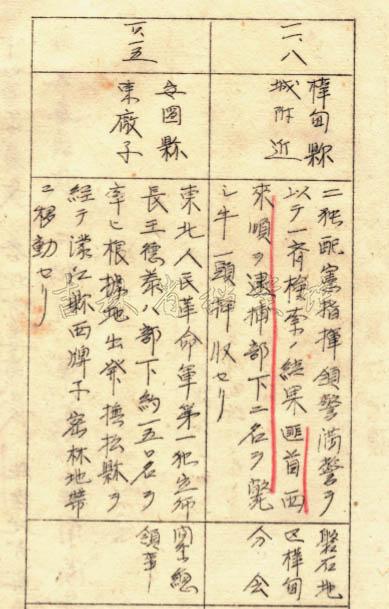 一一、八
樺甸縣
城附近
ニ独配憲指揮領警満警ヲ
以テ一斉検索ノ結果匪首西
來順ヲ逮捕部下二名ヲ斃
シ牛一頭押収セリ
磐石地
区樺甸
分会
一五
安圖縣
東廠子
東北人民革命軍第一師
長王徳泰ハ部下約一五〇名ヲ
率ヒ根據地出発撫松縣ヲ
経テ濛江縣西牌子密林地帯
ニ移動セリ
総
領事
吉林省档案馆